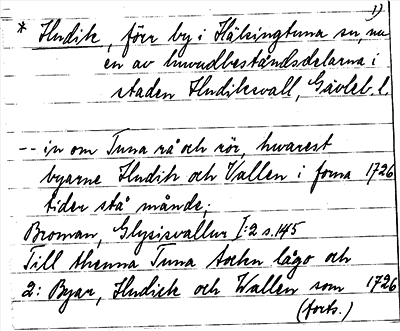 1)
* Hudik, förr by i Hälsingtuna sn, nu
en av huvudbeståndsdelarna i
staden Hudiksvall, Gävleb. l.
-- in om Tuna rå och rör, hwarest
byarne Hudik och Vallen i forna 1726
tider stå månde;
Broman, Glysisvallur I:2 s. 145
Till thenna Tuna Sockn lågo och
2: Byar, Hudick och Wallen som 1726
(forts.)